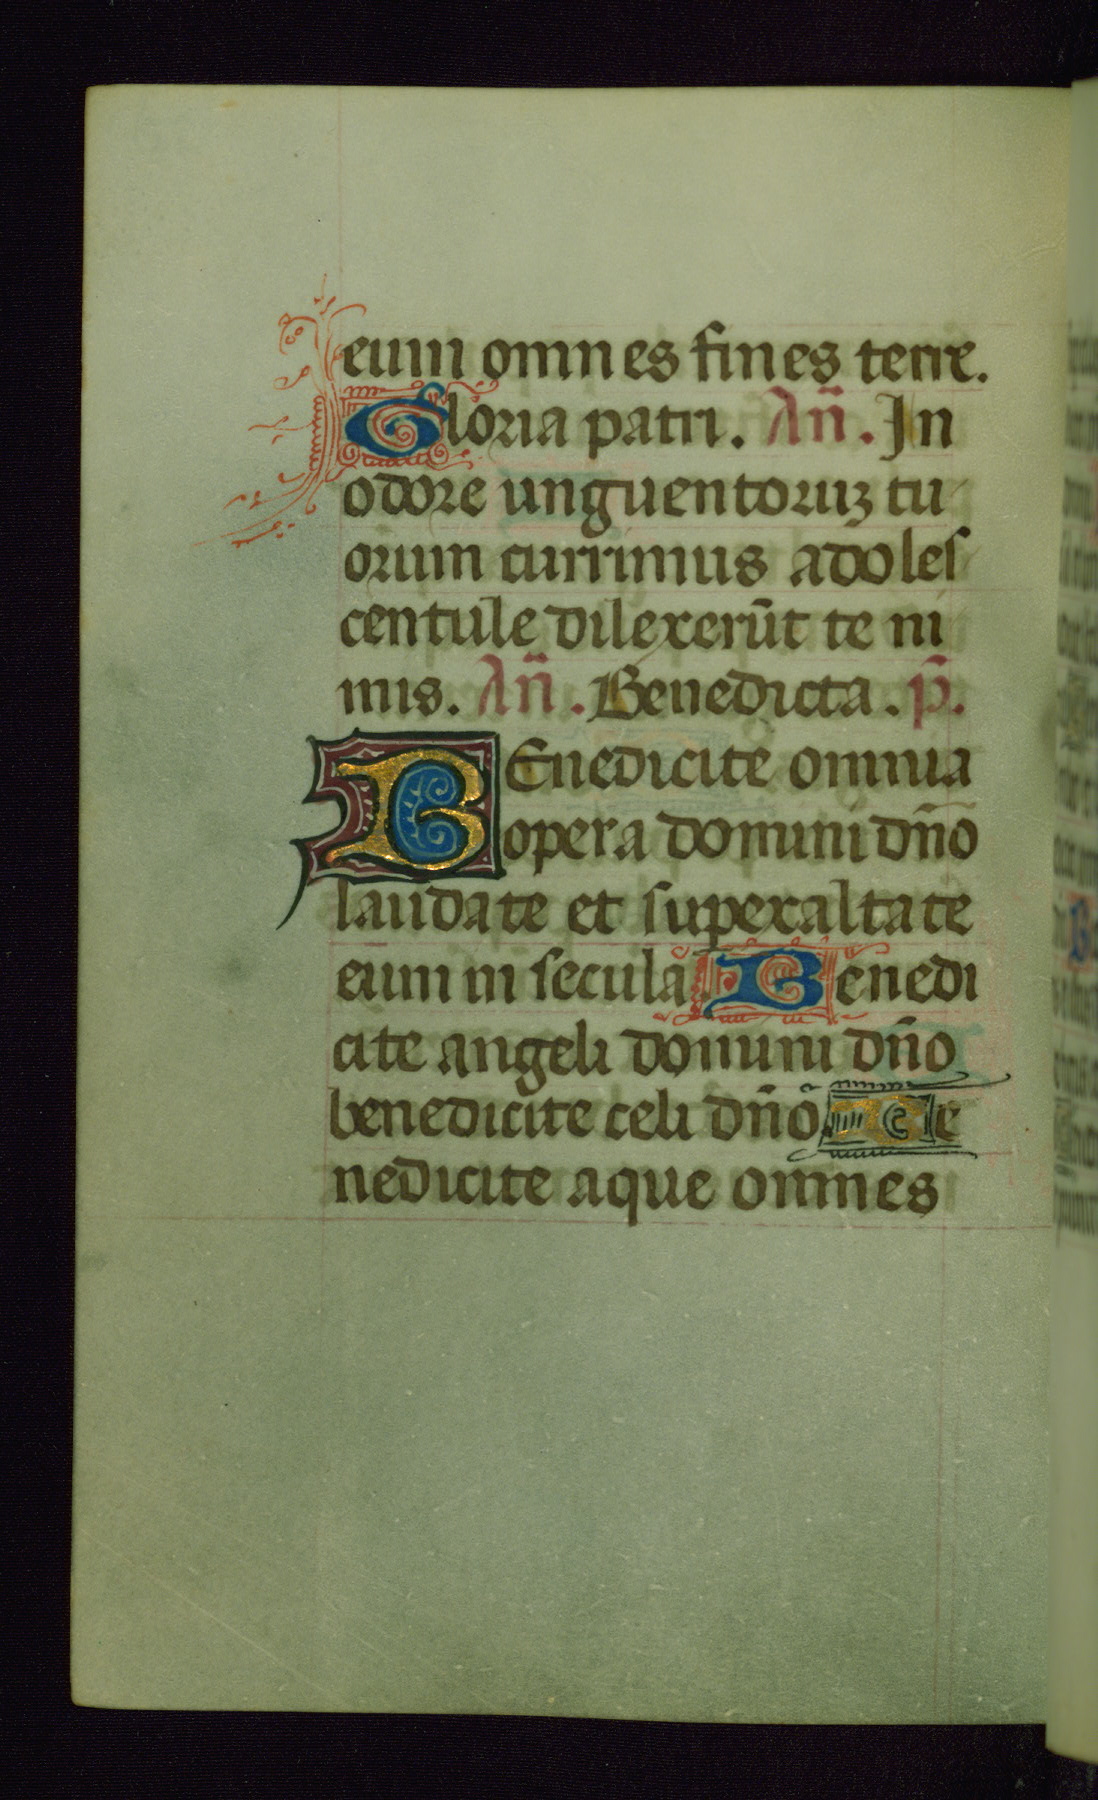 eum omnes fines terre.
Gloria patri. Añ. In
odore unguentoruꝫ tu
orum currimus adoles
centule dilexerūt te ni
mis. Añ. Benedicta. p̃.
BEnedicite omnia
opera domini dño
laudate et superexaltate
eum in secula. Benedi
cite angeli domini dño
benedicite celi dño. Be
nedicite aque omnes